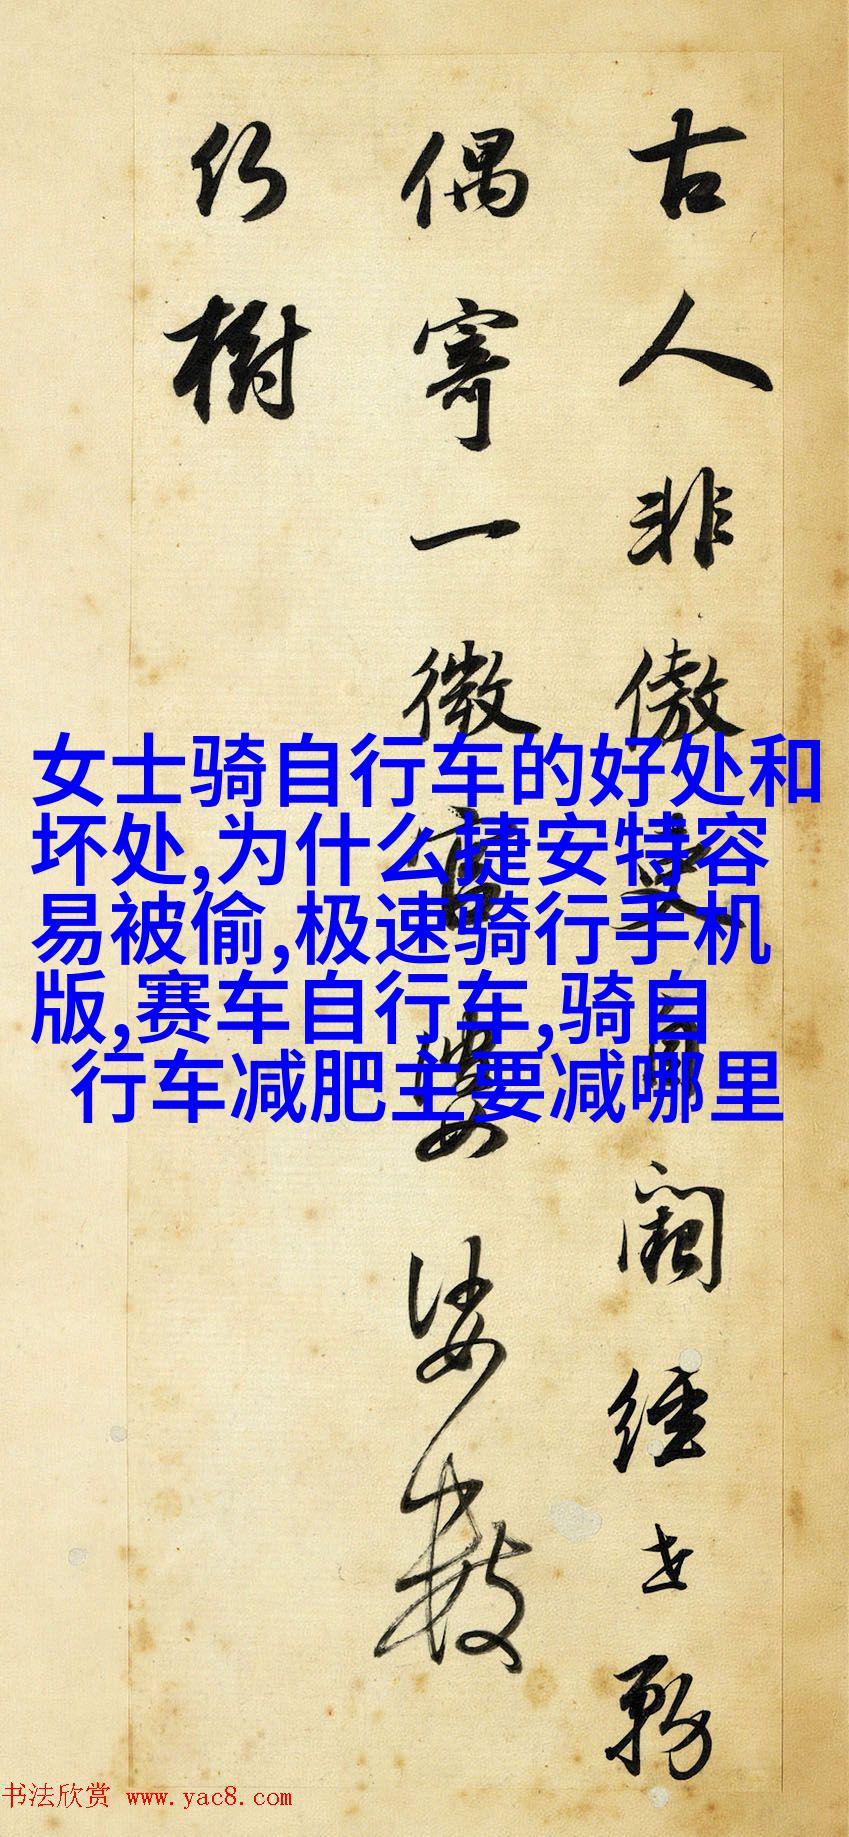 古人非傲吏自闕經世務
偶寄一微官婆娑數
仍樹
女士骑自行车的好处和
坏处,为什么捷安特容
易被偷,极速骑行手机
版,赛车自行车,骑自
行车减肥主要减哪里
书法欣赏 www.yac8.com